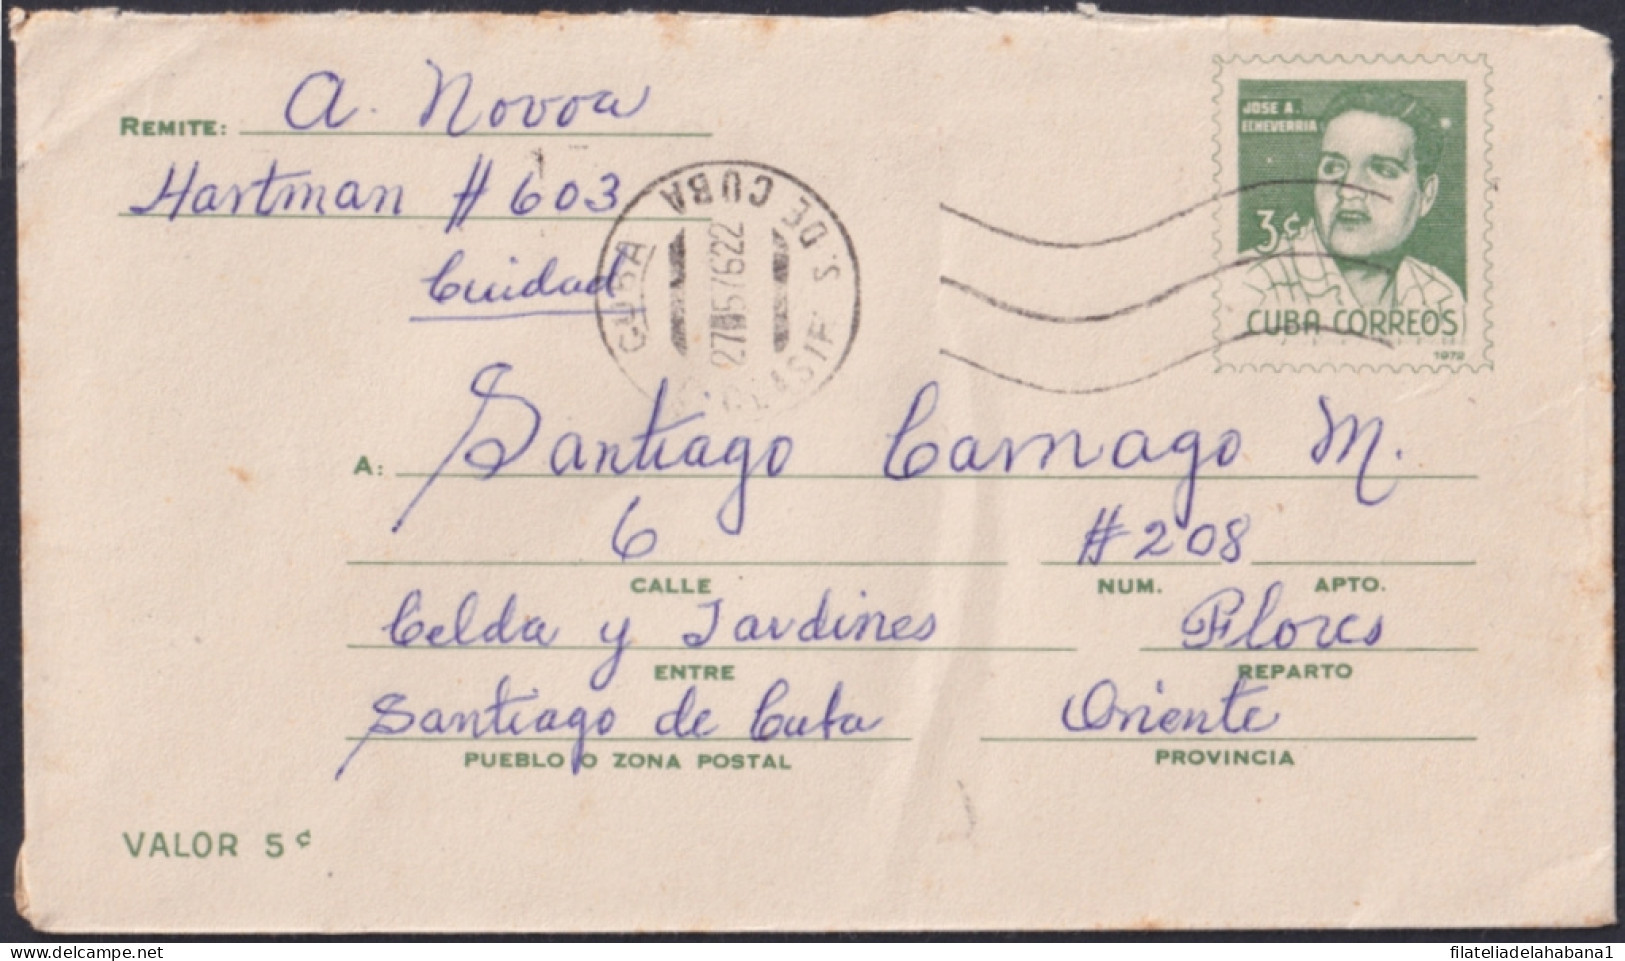 REMITE: A. Novoa
Hartman # 603
Cuidad
JOSE A.
ECHEVERRIA
3¢
CUBA CORREOS
1972
S. DE CUBA
CUBA
27 5 76 22
A: Santiago Camago M.
6 #208
CALLE NUM. APTO.
Celda y Jardines Flores
ENTRE REPARTO
Santiago de Cuba Oriente
PUEBLO O ZONA POSTAL PROVINCIA
VALOR 5¢
filateliadelahabana1